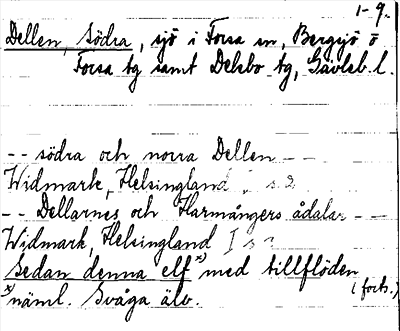 1-9.
Dellen, Södra, sjö i Forsa sn, Bergsjö o
Forsa tg samt Delsbo tg, Gävleb. l.
-- södra och norra Dellen --
Widmark, Helsingland I s 2
-- Dellarnes och Harmångers ådalar --
Widmark, Helsingland I s
Sedan denna elf x) med tillflöden
(forts.)
x) näml. Svåga älv.